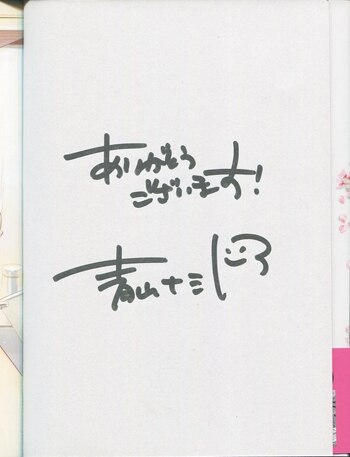 ありがとう
ございます!
青山十三